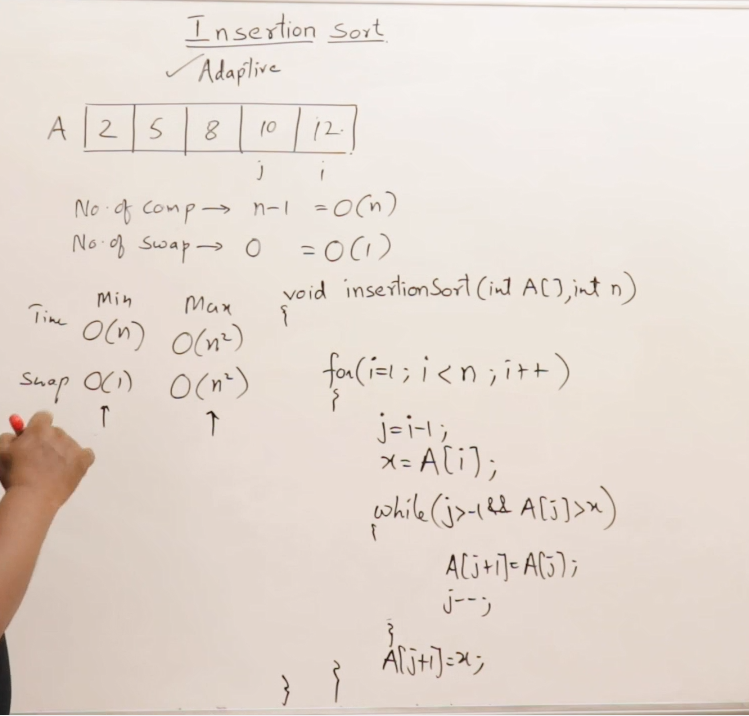 Insertion Sort
✓ Adaptive
A 2 5 8 10 12
j i
No. of comp → n-1 = O(n)
No. of swap → 0 = O(1)
Min Max
Time O(n) O(n²)
Swap O(1) O(n²)
↑ ↑
void insertionSort(int A[], int n)
{
for(i=1; i<n; i++)
{
j=i-1;
x=A[i];
while(j>-1 && A[j]>x)
{
A[j+1]=A[j];
j--;
}
A[j+1]=x;
} }